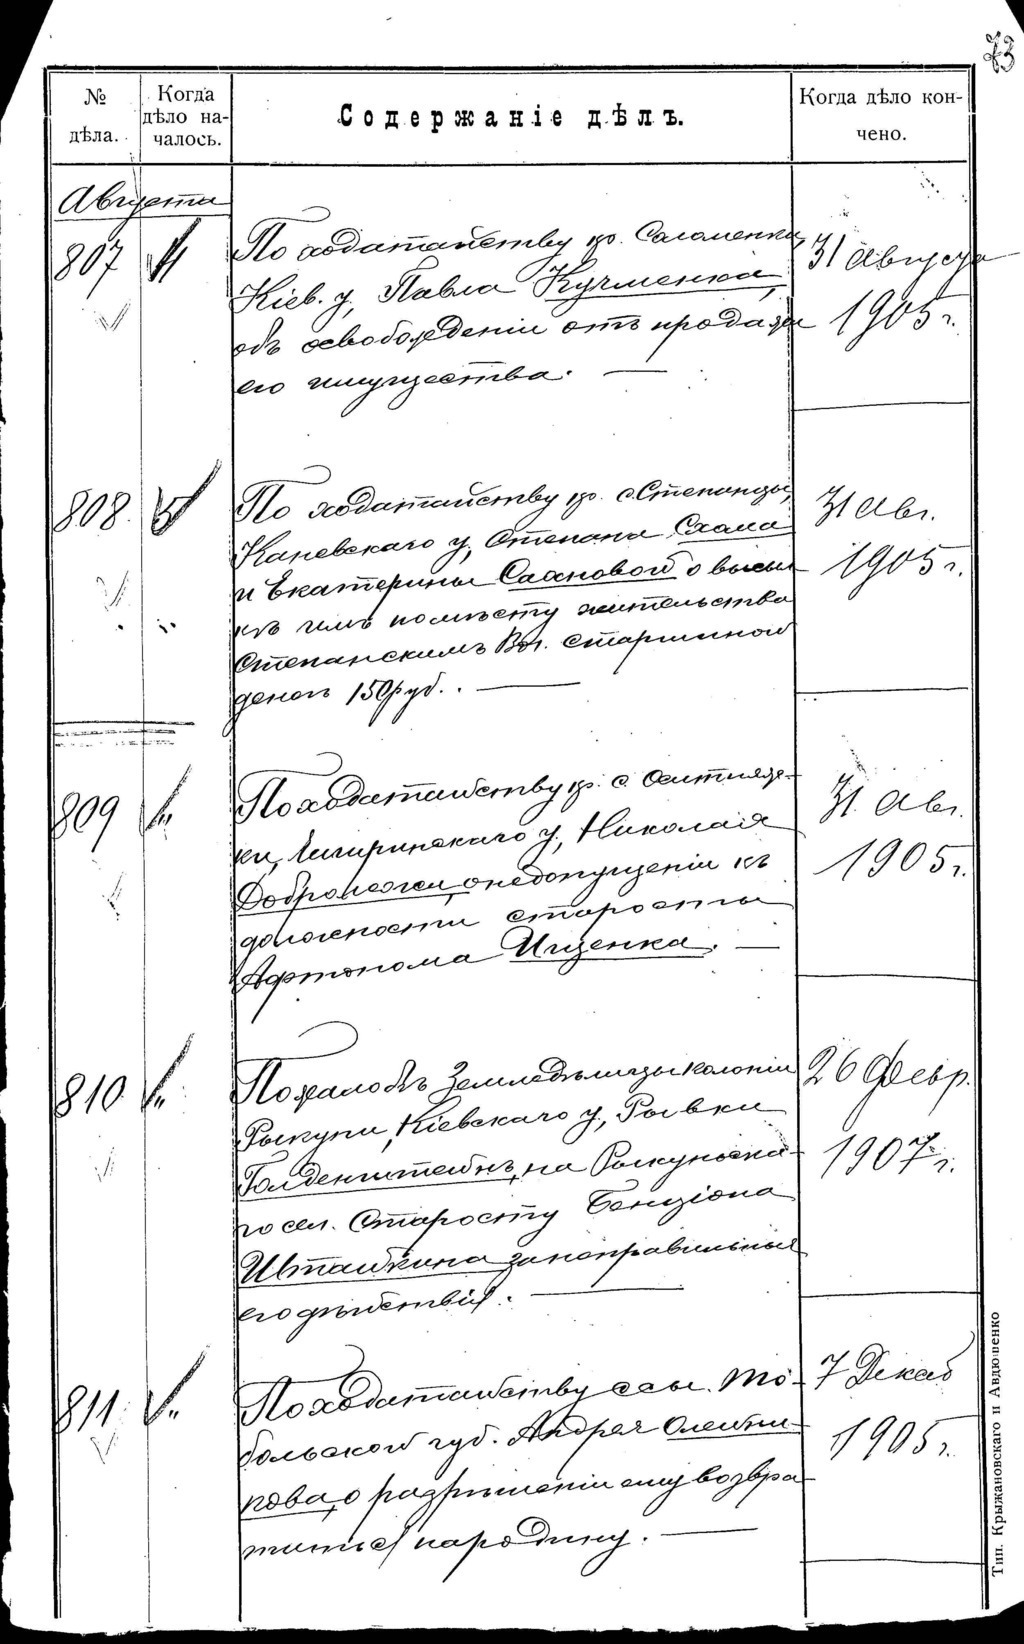 73
№ дѣла.
Когда дѣло началось.
Содержаніе дѣлъ.
Когда дѣло кончено.
Августа
807
По ходатайству кр. Соломенки
Кіев. у, Павла Кучменка,
объ освобожденіи отъ продажи
его имущества.
31 Августа
1905 г.
808
5
По ходатайству кр. с. Степанцы,
Каневскаго у, Степана Схала
и Екатерины Сахновой о высыл
къ имъ по мѣсту жительства
Степанскимъ Вол. старшиной
денегъ 150 руб.
31 Авг.
1905 г.
809
"
По ходатайству кр. с. Оситняж-
ки, Чигиринскаго у, Николая
о недопущеніи къ
должности старосты
Афтонома Ищенка.
31 Авг.
1905 г.
810
"
По жалобѣ Земледѣлицы колоніи
Рыкуни, Кіевскаго у, Рывки
Голденштейнъ, на Рыкунска-
го сел. Старосту Бенціона
Штайкина за неправильныя
его дѣйствія.
26 Февр.
1907 г.
811
"
По ходатайству ссы. То-
больской губ. Андрея Олейни-
кова, о разрѣшеніи ему возвра-
титься на родину.
7 Декаб
1905 г.
Тип. Крыжановскаго и Авдюшенко